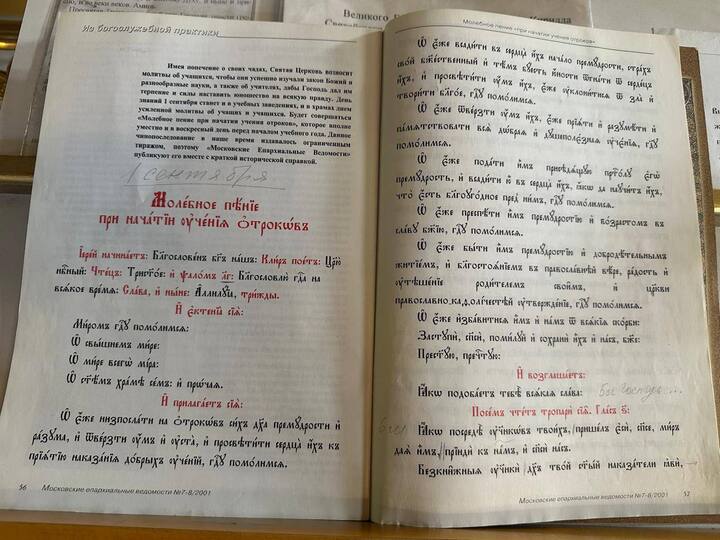 во веки веков. Аминь.
Великого
Из богослужебной практики
Имея попечение о своих чадах, Святая Церковь возносит
молитвы об учащихся, чтобы они успешно изучали закон Божий и
разнообразные науки, а также об учителях, дабы Господь дал им
терпение и силы наставить юношество на всякую правду. День
знаний 1 сентября станет и в учебных заведениях, и в храмах днем
усиленной молитвы об учащих и учащихся. Будет совершаться
«Молебное пение при начатии учения отроков», которое вполне
уместно и в воскресный день перед началом учебного года. Данное
чинопоследование в наше время издавалось ограниченным
тиражом, поэтому «Московские Епархиальные Ведомости»
публикуют его вместе с краткой исторической справкой.
1 сентября
Моле́бное пѣ́нїе
при нача́тїи ᲂу҆че́нїя ѻ҆́трокѡвъ
І҆ере́й начина́етъ: Бл҃гослове́нъ бг҃ъ на́шъ: Кли́ръ пое́тъ: Цр҃ю̀
нбⷭ҇ный: Чте́цъ: Трист҃о́е: и҆ ѱало́мъ л҃г: Бл҃гословлю̀ гдⷭ҇а на
всѧ́кое вре́мѧ: Сла́ва, и҆ ны́нѣ: А҆ллилꙋ́їа, три́жды.
И҆ є҆ктенїѝ сїѧ̑:
Ми́ромъ гдⷭ҇ꙋ помо́лимсѧ:
Ѽ свы́шнемъ ми́рѣ:
Ѽ ми́рѣ всегѡ̀ мі́ра:
Ѽ ст҃ѣ́мъ хра́мѣ се́мъ: и҆ прѡ́чаѧ.
И҆ прилага́етъ сїѧ̑:
Ѽ є҆́же низпосла́ти на ѻ҆́трокѡвъ си́хъ дх҃а премⷣрости и҆
ра́зꙋма, и҆ ѿве́рзти ᲂу҆́мъ и҆ ᲂу҆ста̀, и҆ просвѣти́ти сердца̀ и҆́хъ къ
прїѧ́тїю наказа́нїѧ до́брыхъ ᲂу҆че́нїй, гдⷭ҇ꙋ помо́лимсѧ.
56 Московские епархиальные ведомости №7-8/2001
Молебное пение «при начатии учения отроков»
Ѽ є҆́же всади́ти въ сердца̀ и҆́хъ нача́ло премꙋ́дрости, стра́хъ
сво́й бжⷭ҇твенный и҆ тѣ́мъ бꙋ́есть ю҆́ности ѿгна́ти ѿ се́рдецъ
и҆́хъ, и҆ просвѣти́ти ᲂу҆́мъ и҆́хъ, є҆́же ᲂу҆клони́тисѧ ѿ ѕла̀ и҆
твори́ти бл҃го́е, гдⷭ҇ꙋ помо́лимсѧ.
Ѽ є҆́же ѿве́рзти ᲂу҆́мъ и҆́хъ, є҆́же прїѧ́ти и҆ разꙋмѣ́ти и҆
па́мѧтствовати всѧ̑ дѡ́браѧ и҆ дꙋшеполє́знаѧ ᲂу҆чє́нїѧ, гдⷭ҇ꙋ
помо́лимсѧ.
Ѽ є҆́же пода́ти и҆̀мъ присѣдѧ́щꙋю прⷭ҇то́лꙋ є҆гѡ̀
премꙋ́дрость, и҆ всади́ти ю҆̀ въ сердца̀ и҆́хъ, ꙗ҆́кѡ да наꙋчи́тъ и҆̀хъ,
что̀ є҆́сть бл҃гоꙋго́дное пред̾ ни́мъ, гдⷭ҇ꙋ помо́лимсѧ.
Ѽ є҆́же преспѣ́ти и҆̀мъ премꙋ́дростїю и҆ во́зрастомъ въ
сла́вꙋ бж҃їю, гдⷭ҇ꙋ помо́лимсѧ.
Ѽ є҆́же бы́ти и҆̀мъ премꙋ́дростїю и҆ добродѣ́тельнымъ
житїе́мъ, и҆ бл҃гостоѧ́нїемъ въ правосла́внѣй вѣ́рѣ, ра́дость и҆
ᲂу҆тѣше́нїе роди́телемъ свои̑мъ, и҆ цр҃кви
православно,ка,д,олі́честѣй ᲂу҆твержде́нїе, гдⷭ҇ꙋ помо́лимсѧ.
Ѽ є҆́же и҆зба́витисѧ и҆̀мъ и҆ на́мъ ѿ всѧ́кїѧ ско́рби:
Застꙋпѝ, сп҃сѝ, поми́лꙋй и҆ сохранѝ и҆̀хъ и҆ на́съ, бж҃е:
Прест҃ꙋ́ю, пречⷭ҇тꙋю:
И҆ возглаша́етъ:
Ꙗ҆́кѡ подоба́етъ тебѣ̀ всѧ́каѧ сла́ва:
Посе́мъ чте́тъ тропари̑ сїѧ̑. Гла́съ в҃:
Ꙗ҆́кѡ посредѣ̀ ᲂу҆чн҃кѡ́въ твои́хъ, прише́лъ є҆сѝ, сп҃се, ми́ръ
даѧ̀ и҆̀мъ, прїидѝ къ на́мъ, и҆ сп҃сѝ на́съ.
Безкни̑жныѧ ᲂу҆чн҃кѝ дх҃ъ тво́й ст҃ы́й наказа́тели ꙗ҆вѝ,
Московские епархиальные ведомости №7-8/2001 57